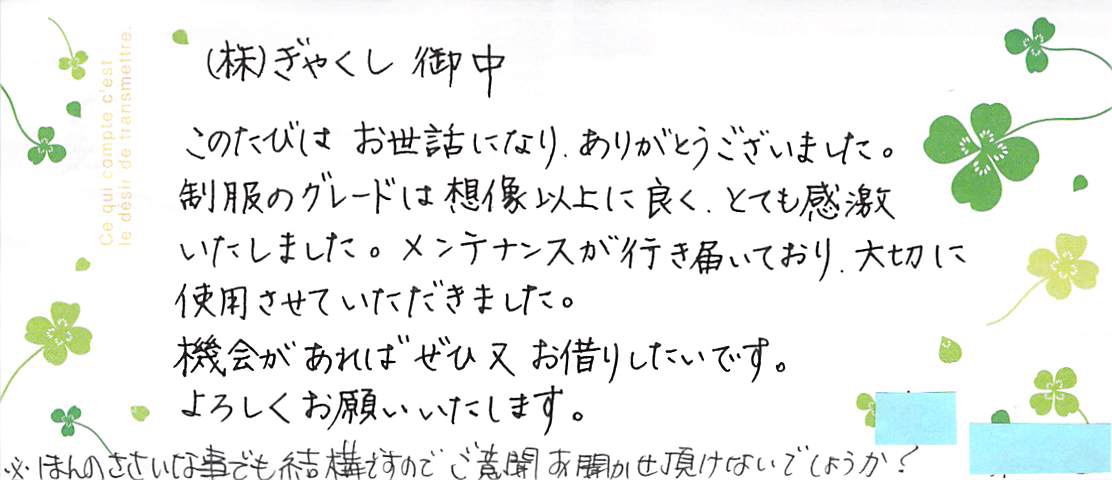 Ce qui compte c'est
le désir de transmettre.
(株)ぎゃくし 御中
このたびは お世話になり、ありがとうございました。
制服のグレードは想像以上に良く、とても感激
いたしました。メンテナンスが行き届いており、大切に
使用させていただきました。
機会があればぜひ又お借りしたいです。
よろしくお願いいたします。
※ほんのささいな事でも結構ですのでご意聞お聞かせ頂けないでしょうか?